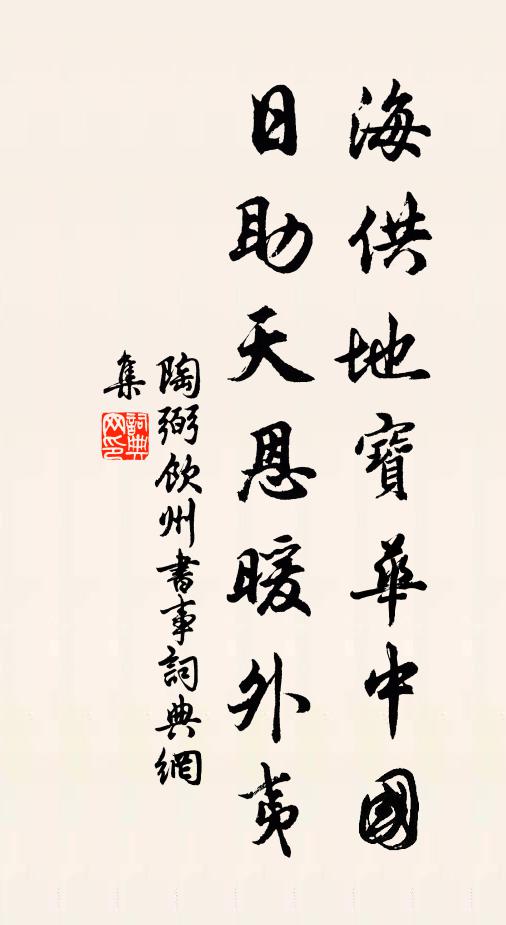 海供地寶華中國
日助天恩暖外夷
陶弼欽州書事詞典網
集
詞典網印